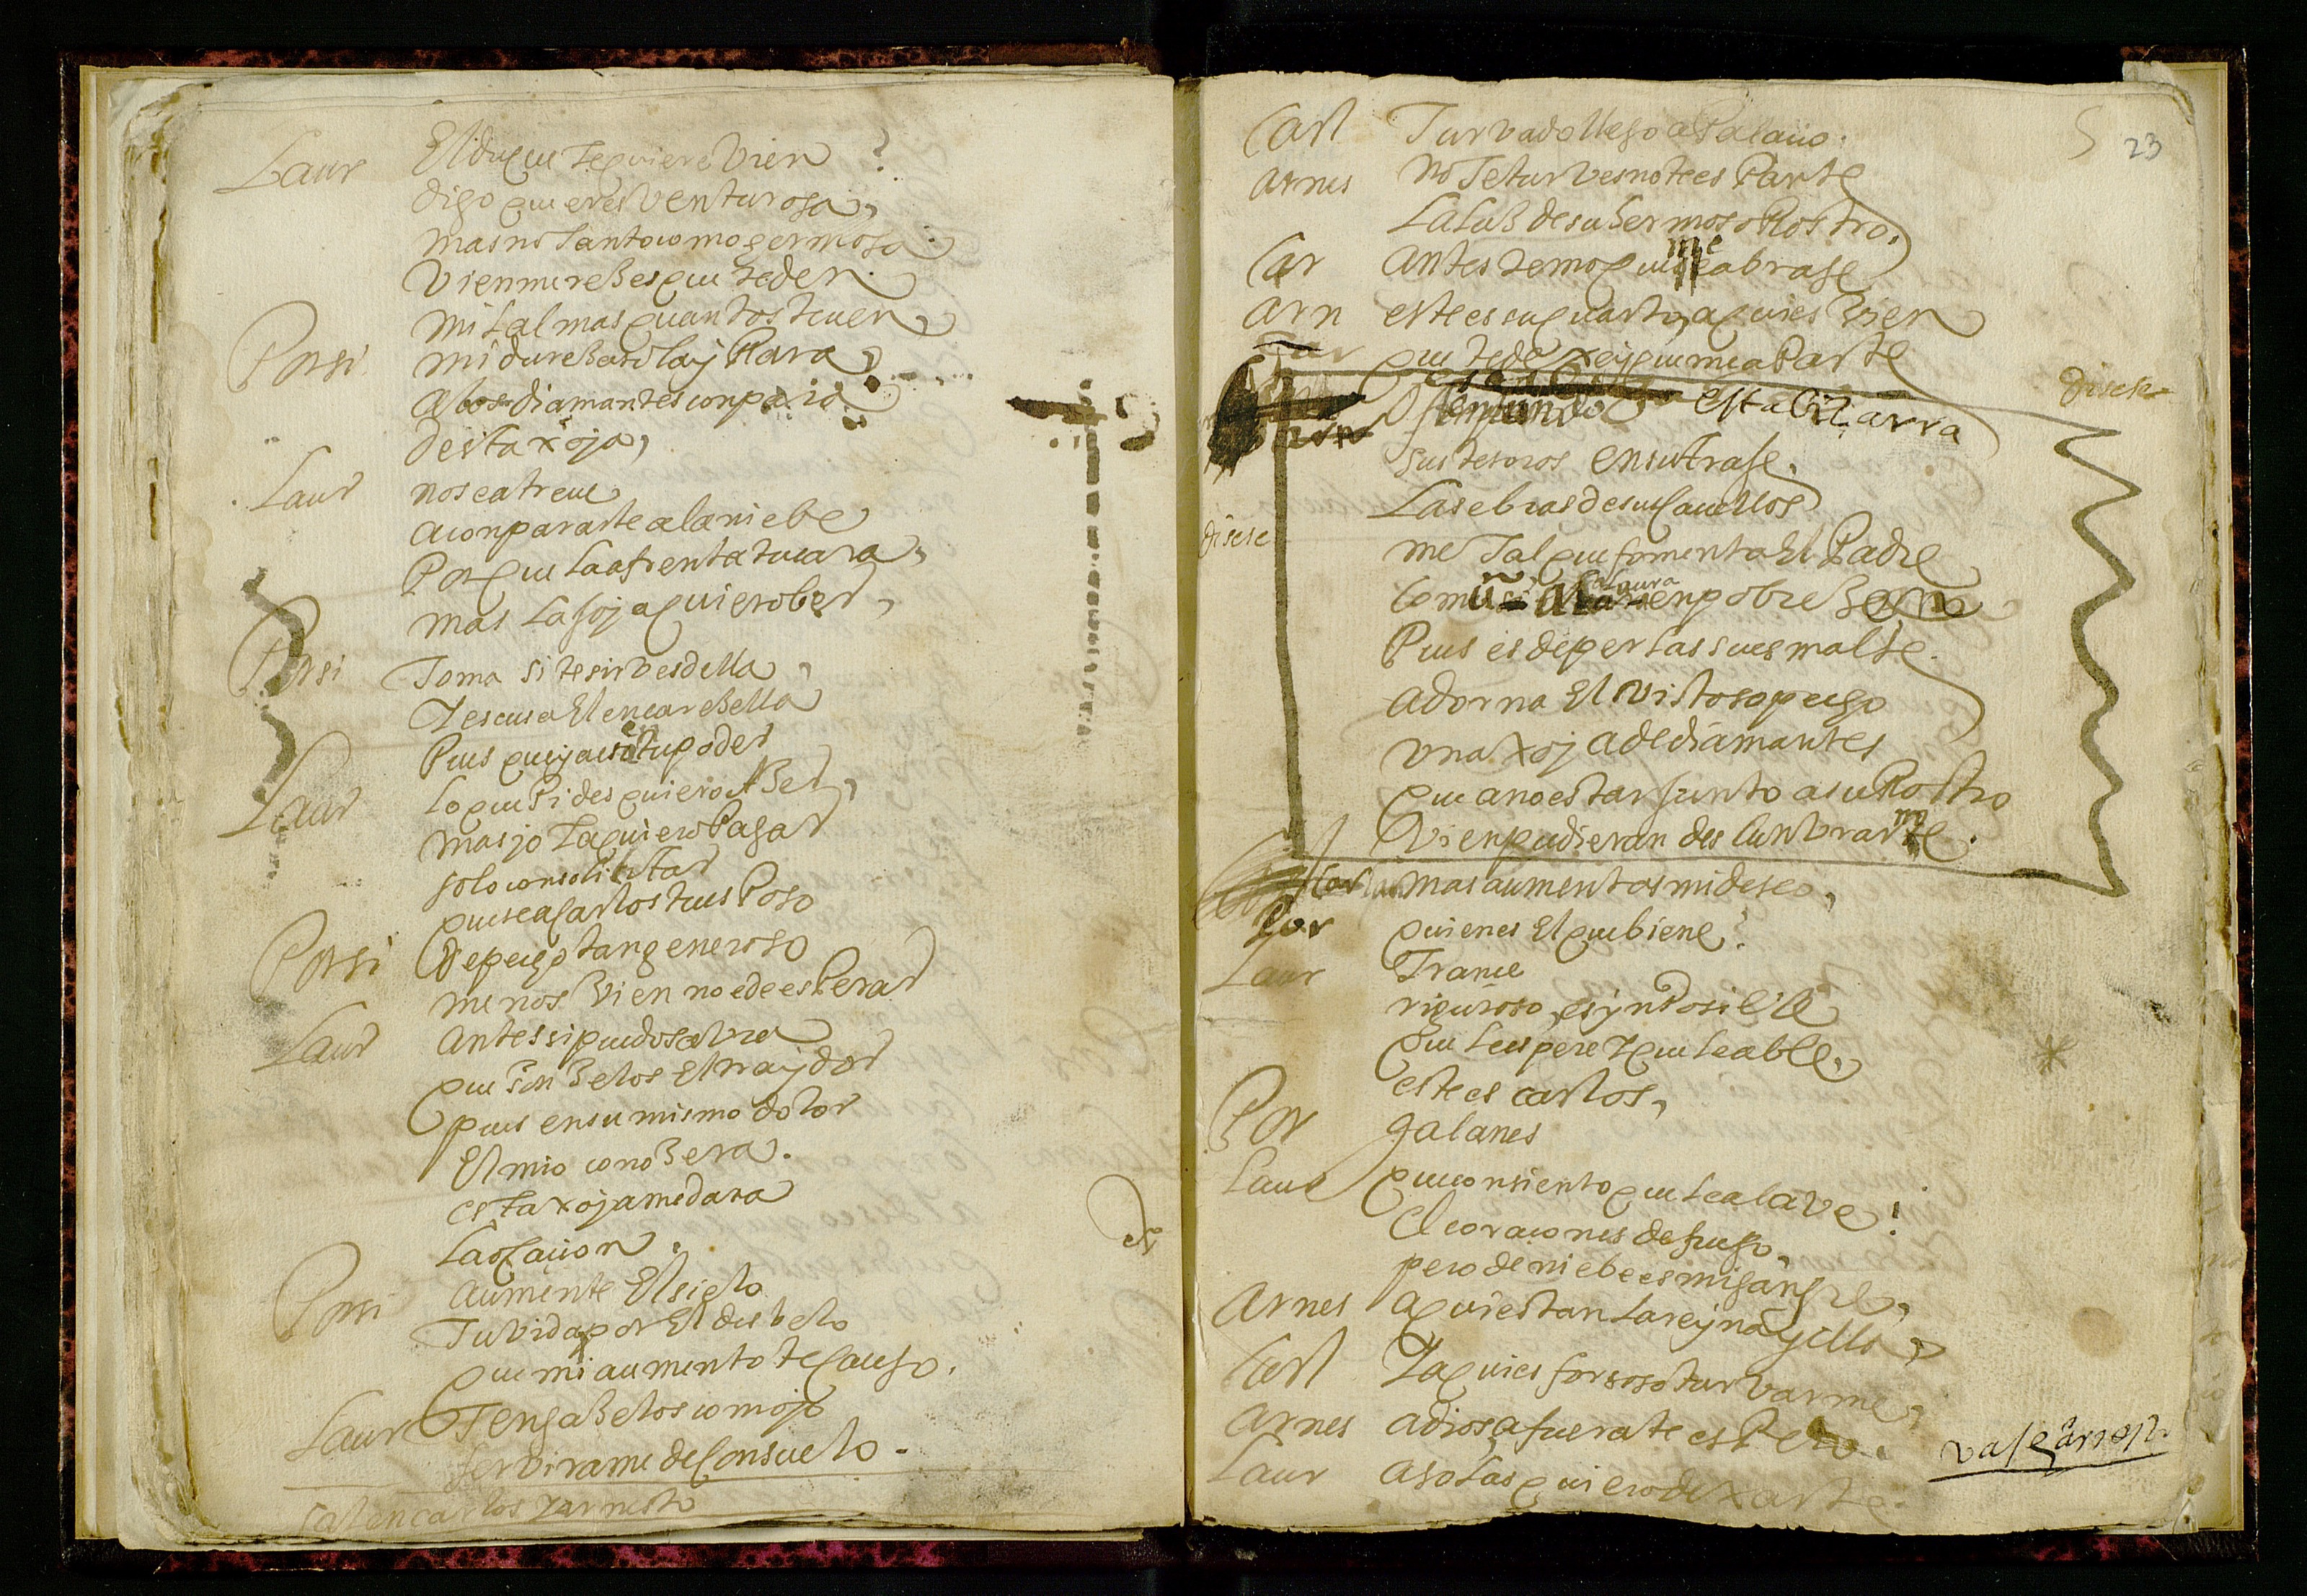 Laur El duque te quiere vien ?
digo que eres venturosa,
mas no tanto como germosa
vien mereçes que te den
mil almas quantos te uen
Porsi mi dureça solaj Para
a los diamantes conpaçio
desta xoja,
Laur no se atreue
a conpararte a la niebe
Porque la afrenta tu cara,
mas la joja quiero ber,
Porsi Toma si te sirbes della
y escusa El encareçella
Pues que ya es en tu poder
Laur lo que Pides quiero Açer,
mas jo la quiero Pagar
solo con soliçitar
que sea Carlos tu esPoso
Porsi de pecho tan generoso
menos vien no e de esPerar
Laur antes si puedo sabra
que son çelos El traydor
pues en su mismo dolor
El mio conoçera.
esta xoja me dara
la ocaçion.
Porsi aumente El sielo
Tu vida por El desbelo
que mi aumento te Causo.
Laur Tenga çelos como jo
servirame de Consuelo.
salen carlos y arnesto
5 23
Carl Turvado llego a Palaçio.
arnes no Te turves no te es Parte
la luz de su hermoso Rostro.
Car antes temo que me abrase
arn este es su quarto, aqui es vien
que te dexe y que me aParte
diçese
Ostentando esta biçarra
sus tesoros en su traje.
las ebras de sus Cauellos
diçese
metal que fomenta El Padre
comun laura en pobreçe
Pues es de perlas su esmalte.
adorna El vistoso pecho
vna xoja de diamantes
que a no estar junto a su Rostro
vien pudieran deslunbrarme.
Car mas aumentas mi deseo,
Por quien es El que biene?
Laur Trançe
riguroso, es ynPosible
que le espere y que le able,
este es carlos,
Por galan es
Laur que consiento que le alave!
El coraçon es de fuego,
pero de niebe es mi sangre,
Arnes aqui estan la reyna y ella,
Carl y aqui es forsoso turvarme,
arnes adios afuera te esPero.
vase arnes.
Laur a solas quiero dexarte.